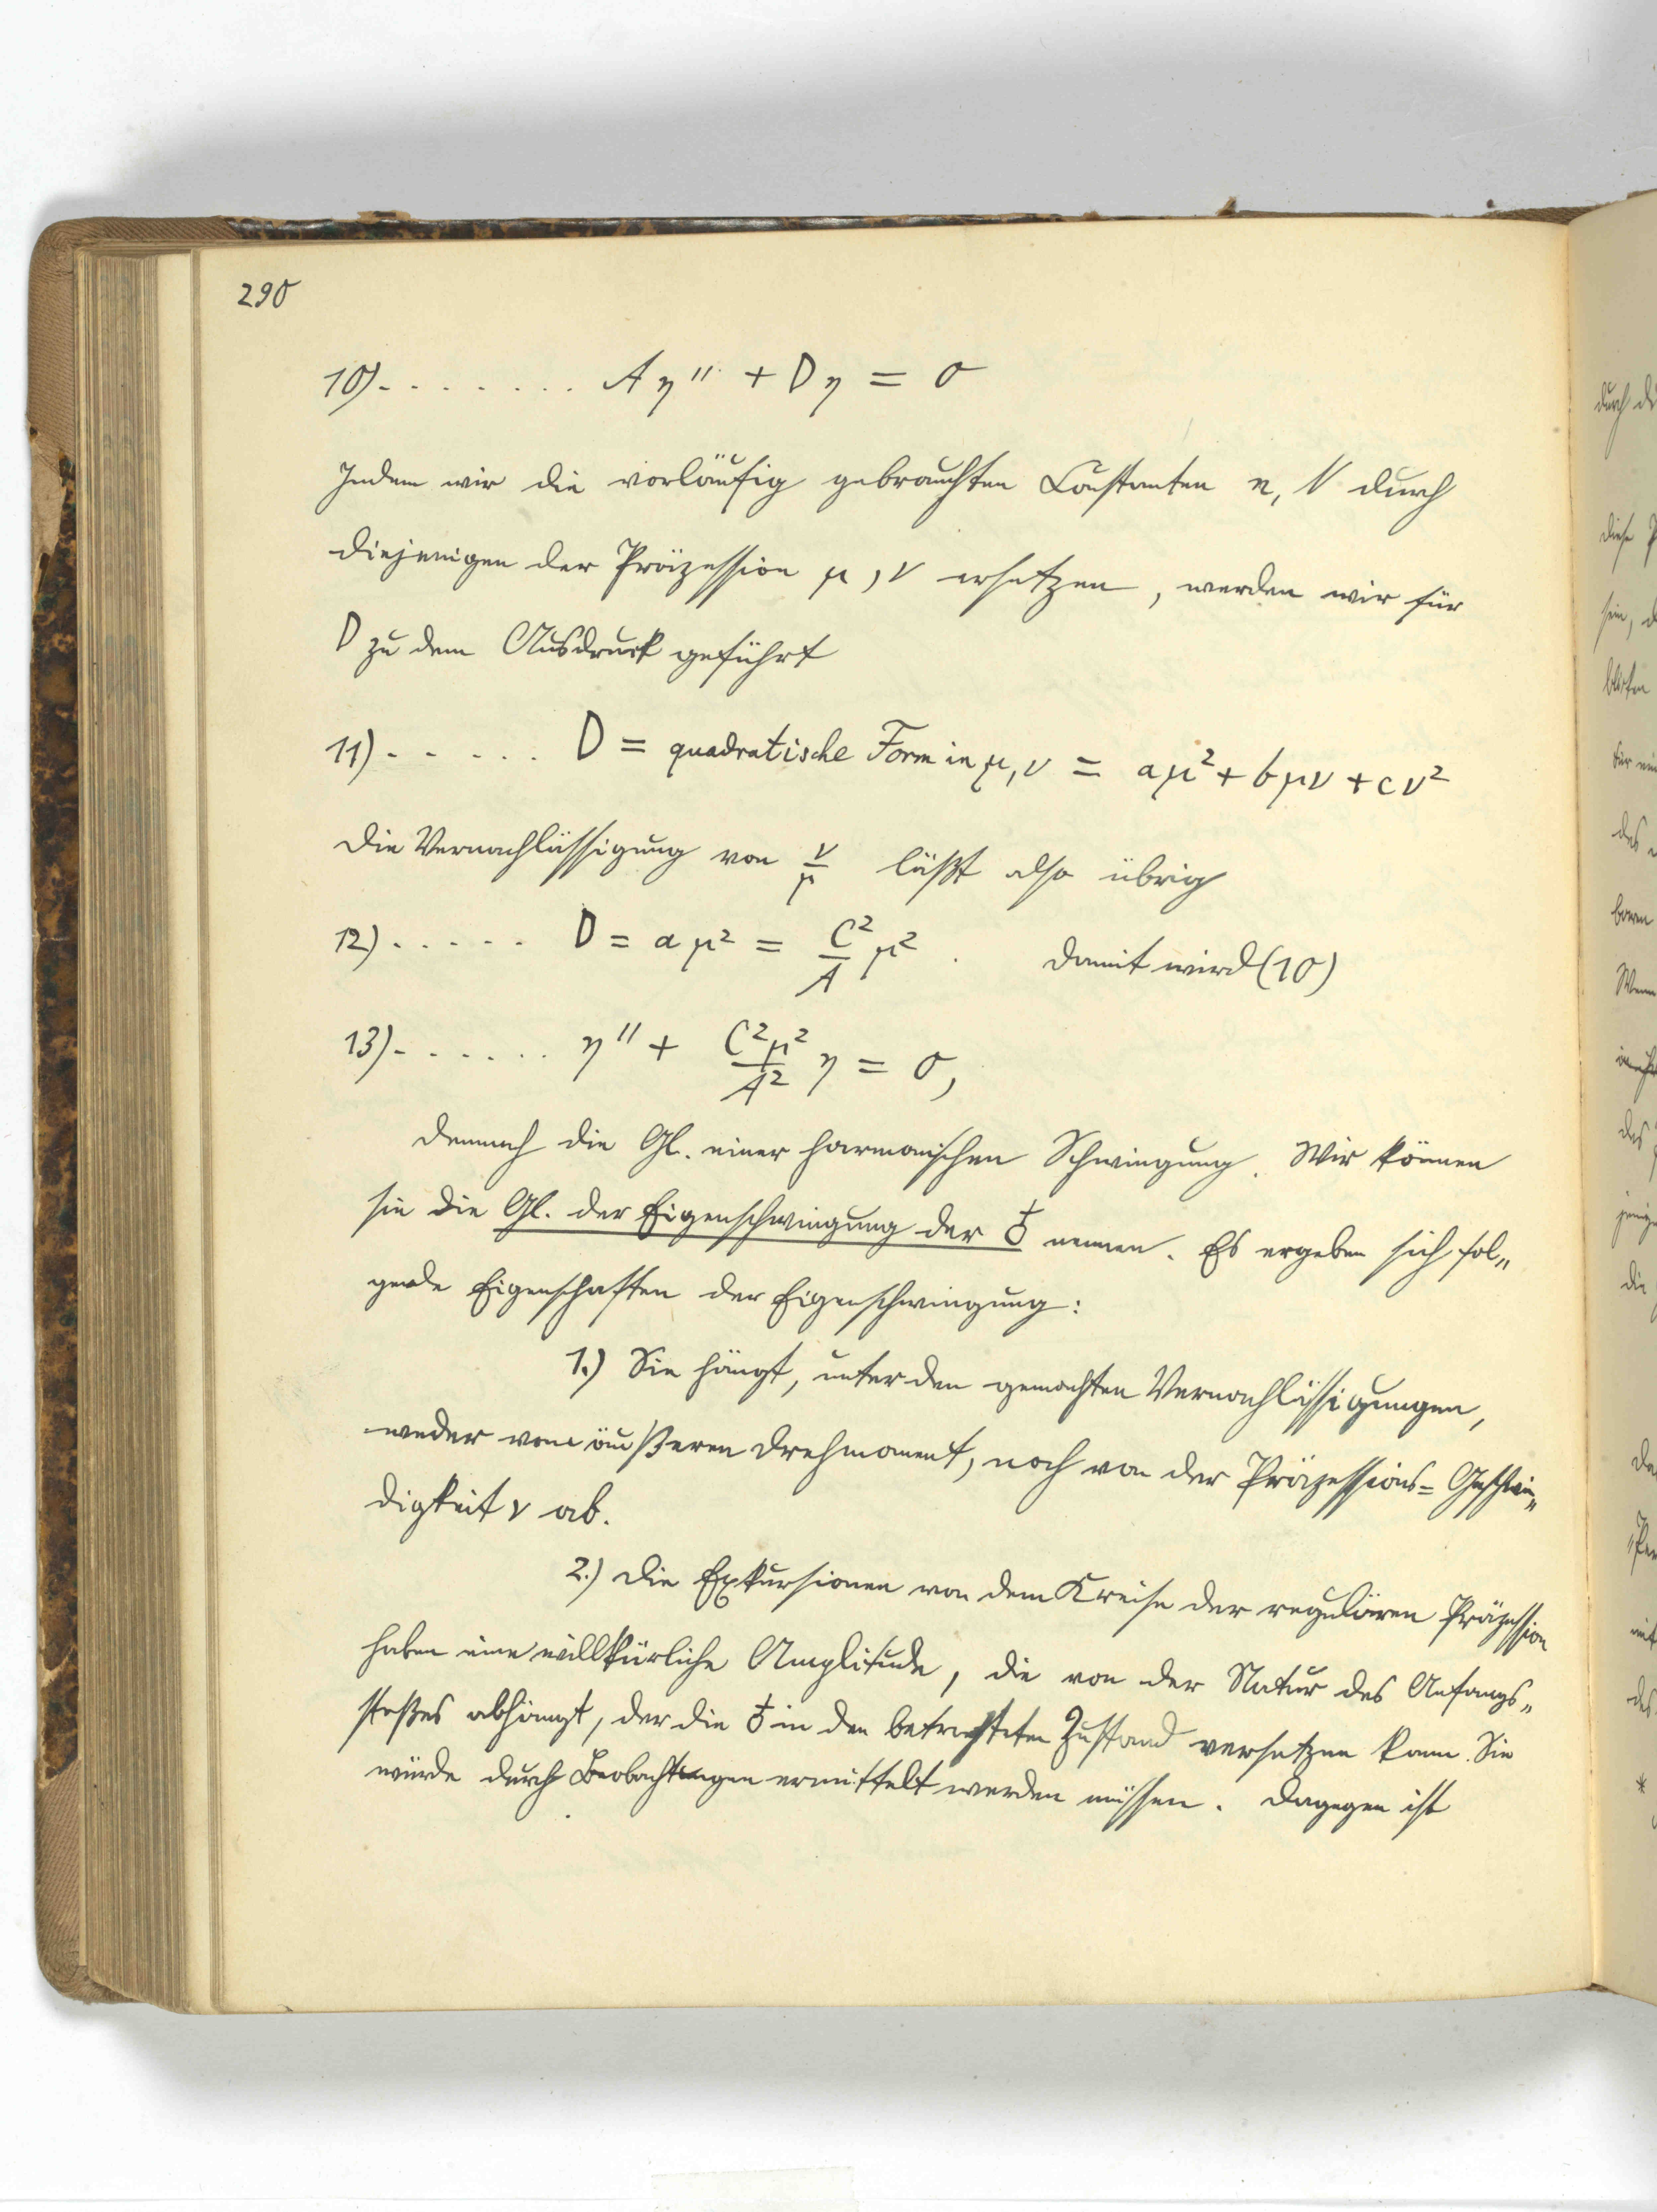 290
10) . . . . . . . . A η'' + D η = 0
Indem wir die vorläufig gebrauchten Constanten n, N durch
diejenigen der Präzession μ, ν ersetzen, werden wir für
D zu dem Ausdruck geführt
11) . . . . . D = quadratische Form in μ, ν = aμ² + bμν + cν²
Die Vernachlässigung von ν/μ läßt also übrig
12) . . . . . D = aμ² = C²/A μ² . Damit wird (10)
13) . . . . . . η'' + C²μ²/A² η = 0,
demnach die Gl. einer harmonischen Schwingung. Wir können
sie die Gl. der Eigenschwingung der ♁ nennen. Es ergeben sich fol„
gende Eigenschaften der Eigenschwingung:
1.) Sie hängt, unter den gemachten Vernachlässigungen,
weder vom äußeren Drehmoment, noch von der Präzessions= Geschwin„
digkeit ν ab.
2.) Die Exkursionen von dem Kreise der regulären Präzession
haben eine willkürliche Amplitude, die von der Natur des Anfangs„
stoßes abhängt, der die ♁ in den betrachteten Zustand versetzen kann. Sie
würde durch Beobachtungen ermittelt werden müssen. Dagegen ist
durch di
diese
sein, d
des
baren
Wenn
des
die